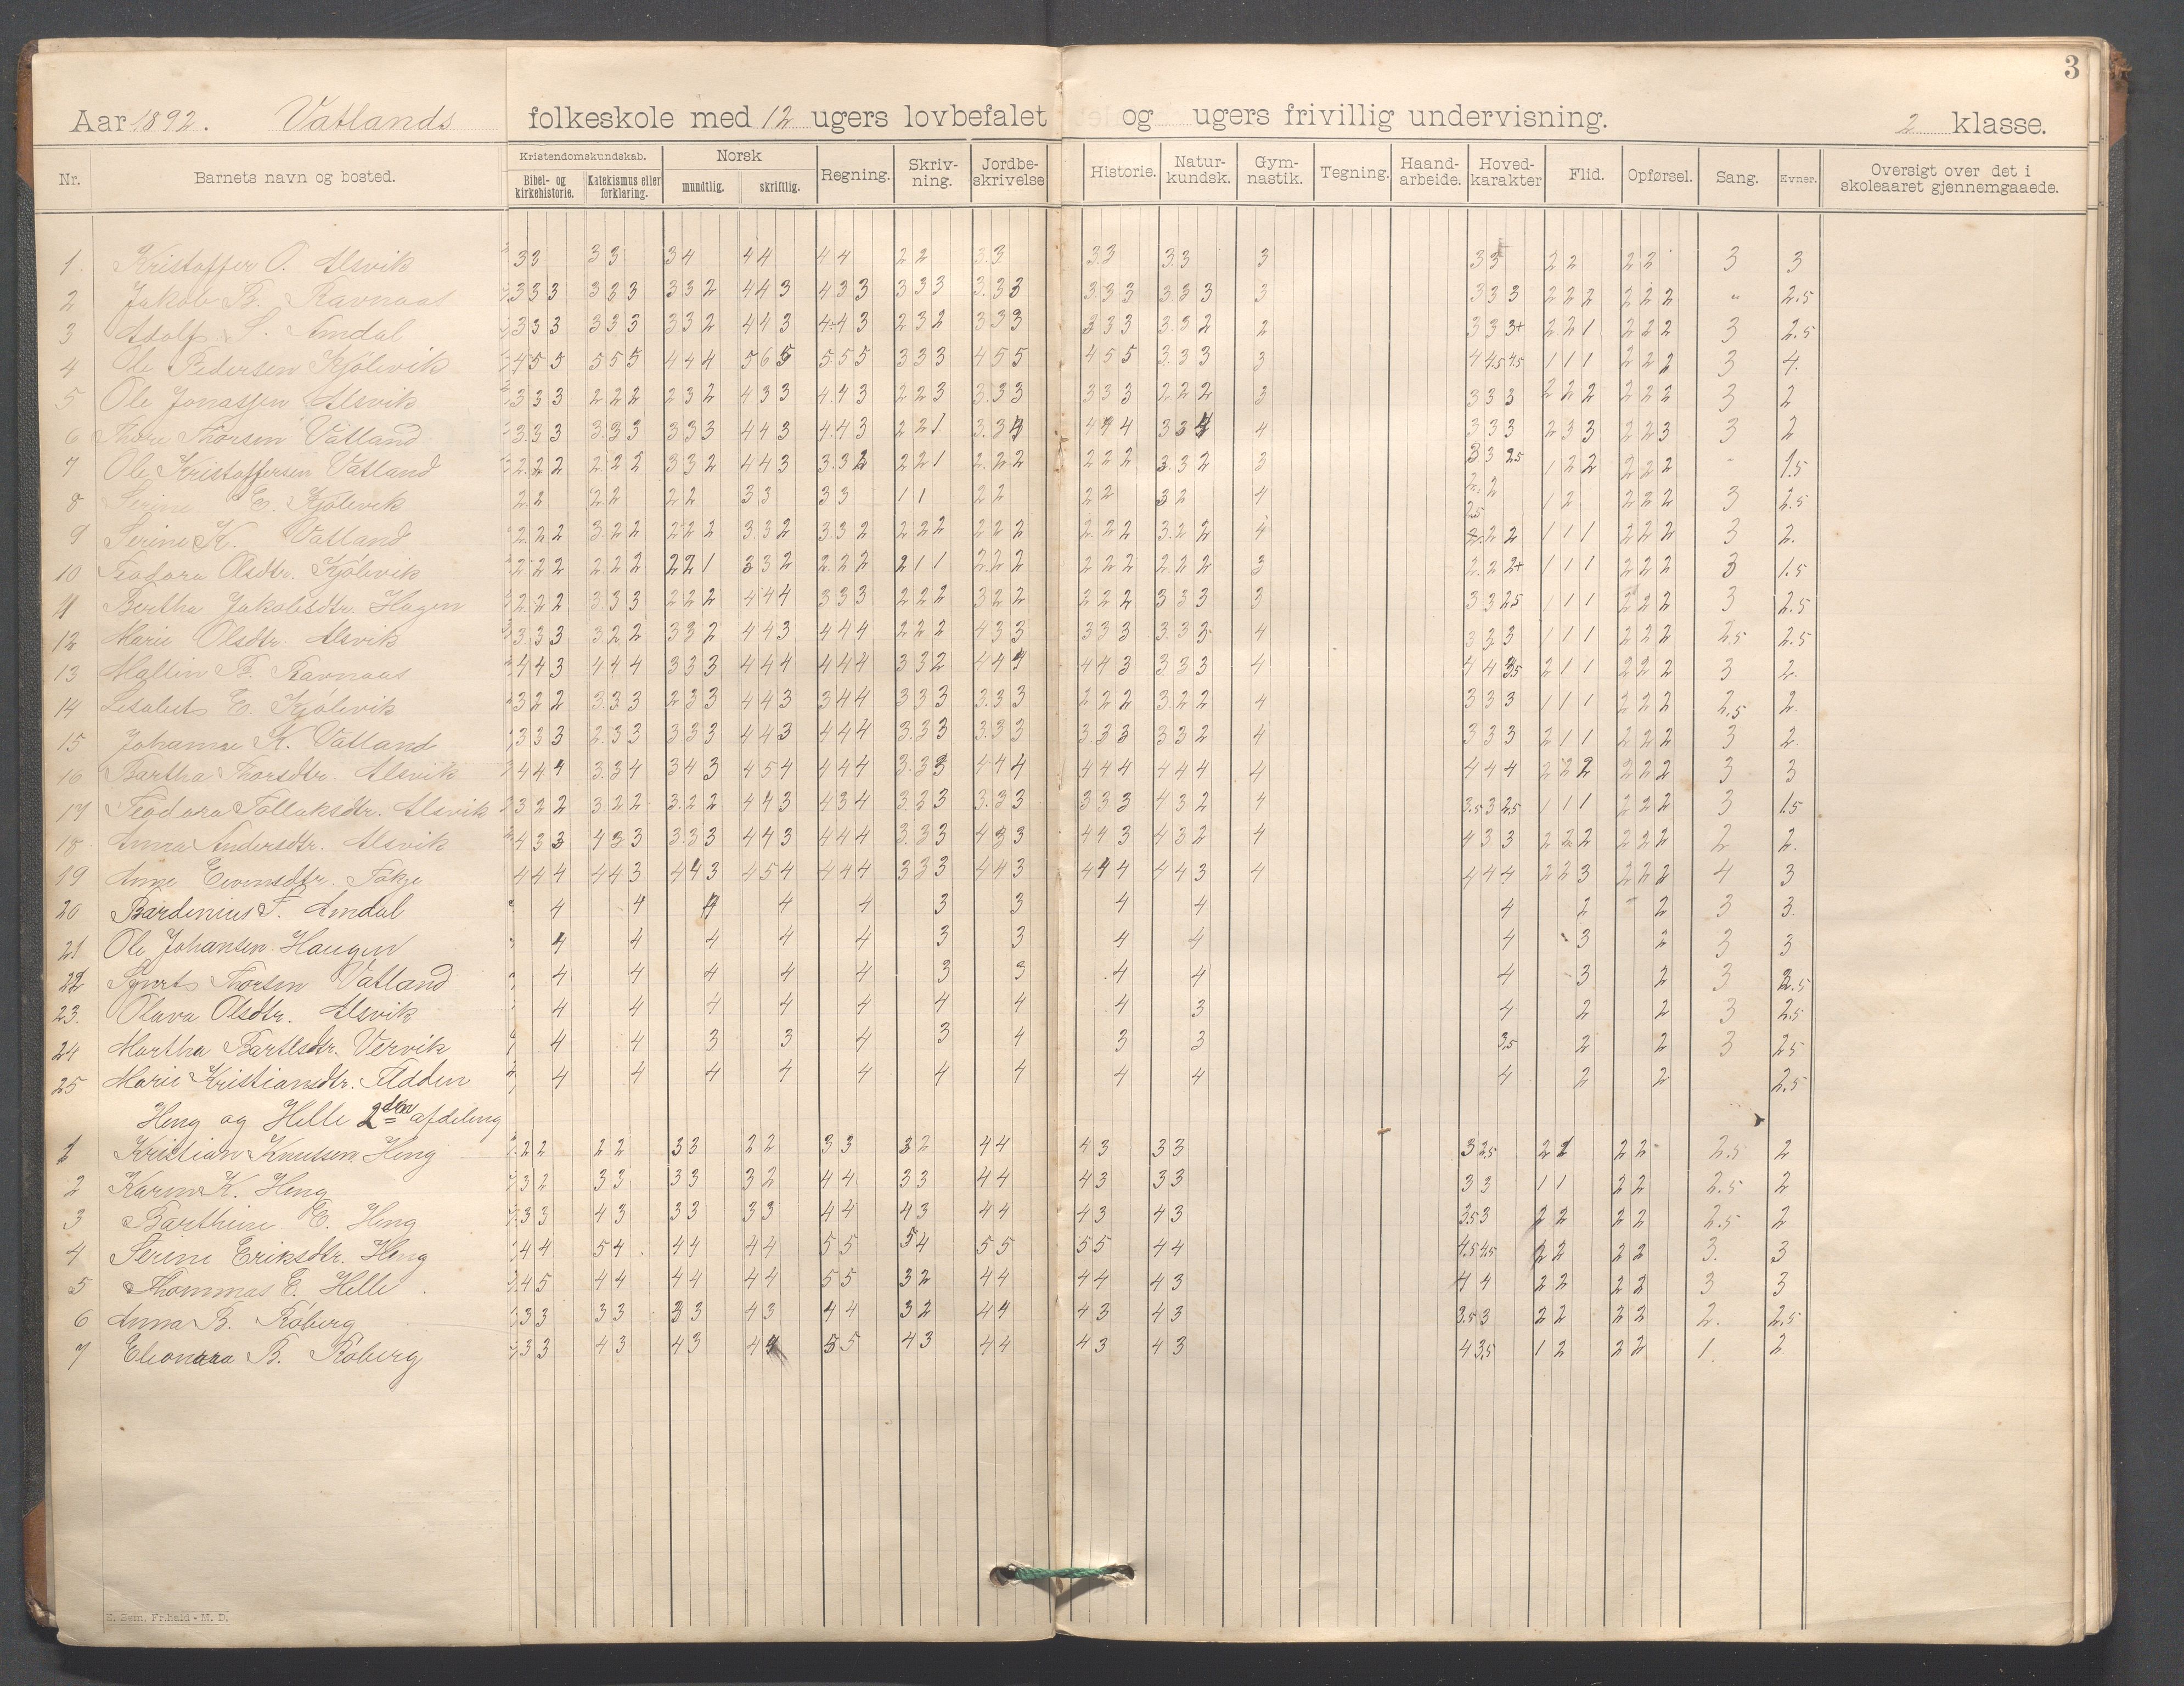 3
Aar 1892. Vatlands folkeskole med 12 ugers lovbefalet og ugers frivillig undervisning. 2 klasse.
Nr. Barnets navn og bosted. Kristendomskundskab. Bibel- og kirkehistorie. Katekismus eller forklaring. Norsk mundtlig. skriftlig. Regning. Skriv-ning. Jordbe-skrivelse Historie. Natur-kundsk. Gym-nastik. Tegning. Haand-arbeide. Hoved-karakter Flid. Opførsel. Sang. Evner. Oversigt over det i skoleaaret gjennemgaaede.
1. Kristoffer O. Alsvik 33 33 34 44 44 22 3.3 3.3 3.3 3 33 22 22 3 3
2 Jakob B. Ravnaas 333 333 332 443 433 333 3.33 3.33 3.33 3 333 222 222 " 2.5
3 Adolf S. Amdal 333 333 332 443 4.43 232 333 333 3.32 2 333+ 221 222 3 2.5
4 Ole Pedersen Kjölevik 455 555 444 565 5.55 333 455 455 3.33 3 4 4.5 4.5 111 222 3 4.
5 Ole Jonassen Alsvik 333 222 232 433 4.43 223 3.33 333 222 3 333 222 222 3 2
6 Thore Thorsen Vatland 3.33 3.33 333 443 4.43 221 3.34 444 334 4 333 233 223 3 2
7 Ole Kristoffersen Vatland 2.22 2.22 332 443 3.32 221 2.22 222 3.32 3 3 3 2.5 122 222 1.5
8 Serine E. Kjölevik 2.2 22 22 33 33 11 22 22 32 4 2.2 12 222 3 2.5
9 Serine K. Vatland 2.22 3.22 222 3.32 3.32 222 222 2.22 3.22 4 2.5 2.22 111 222 3 2.
10 Teodora Olsdtr. Kjölevik 222 222 221 332 2.22 211 2.22 222 2.22 3 2.22+ 111 222 3 1.5
11 Bertha Jakobsdtr. Hagen 2.22 3.33 222 444 333 222 322 222 333 3 3 3 2.5 111 222 3 2.5
12 Marie Olsdtr. Alsvik 3.33 322 332 443 444 222 433 333 3.33 4 323 111 222 2.5 2.5
13 Mallin B. Ravnaas 443 444 333 444 444 332 444 443 333 4 4 4 3.5 211 222 3 2.
14 Lisabet E. Kjölevik 322 3.33 233 443 344 333 3.33 222 3.22 4 333 111 222 2.5 2.
15 Johanne K. Vatland 333 2.33 333 443 444 3.33 3.33 3.33 332 4 333 211 222 3 2.
16 Bartha Thorsdtr. Alsvik 444 3.34 343 454 444 3.33 444 444 444 4 444 222 222 3 3
17 Teodora Tollaksdtr. Alsvik 322 3.22 3.22 443 434 333 3.33 333 432 4 3.5 3 2.5 111 222 3 1.5
18. Anna Andersdtr. Alsvik 433 433 3.33 443 444 3.33 433 443 432 4 433 222 222 2 2.
19 Anne Eivensdtr. Tokje 444 443 443 454 444 333 443 444 443 4 444 223 222 4 3
20 Bardinius T. Amdal 4 4 4 4 4 3 3 4 4 4 2 2 3 3.
21 Ole Johansen Haugen 4 4 4 4 4 3 3 4 4 4 3 2 3 3
22 Thorsen Vatland 4 4 4 4 4 3 3 4 4 4 3 2 3 2.5
23. Olava Olsdtr. Alsvik 4 4 4 4 4 4 4 4 3 4 2 2 3 2.5
24 Martha Bartlsdtr. Vervik 4 4 3 3 4 3 4 3 3 3.5 2 2 3 2.5
25 Marie Kristiansdtr. 4 4 4 4 4 4 4 4 4 4 2 2 2.5
Heng og Helle 2den afdeling
1 Kristian Knutsen Heng 22 22 33 22 33 32 44 43 33 3 2.5 21 22 2.5 2
2 Karen K. Heng 32 33 33 32 44 33 44 43 33 33 11 22 2.5 2
3 Barthine E. Heng 33 43 33 33 44 43 44 43 43 3.5 3 22 22 2.5 2
4 Serine Eriksdtr. Heng 44 54 44 44 55 54 55 55 44 4.5 4.5 22 22 3. 3
5 Thommas E. Helle. 45 44 44 44 55 32 44 44 43 44 22 22 3 3
6 Anna B. Röberg 33 33 33 43 44 32 44 43 43 3.5 3 22 22 2. 2.5
7 Eleonora B. Röberg 33 43 43 44 55 43 44 43 43 4 3.5 12 22 1. 2
E. Sem. Fr.hald - M. D.